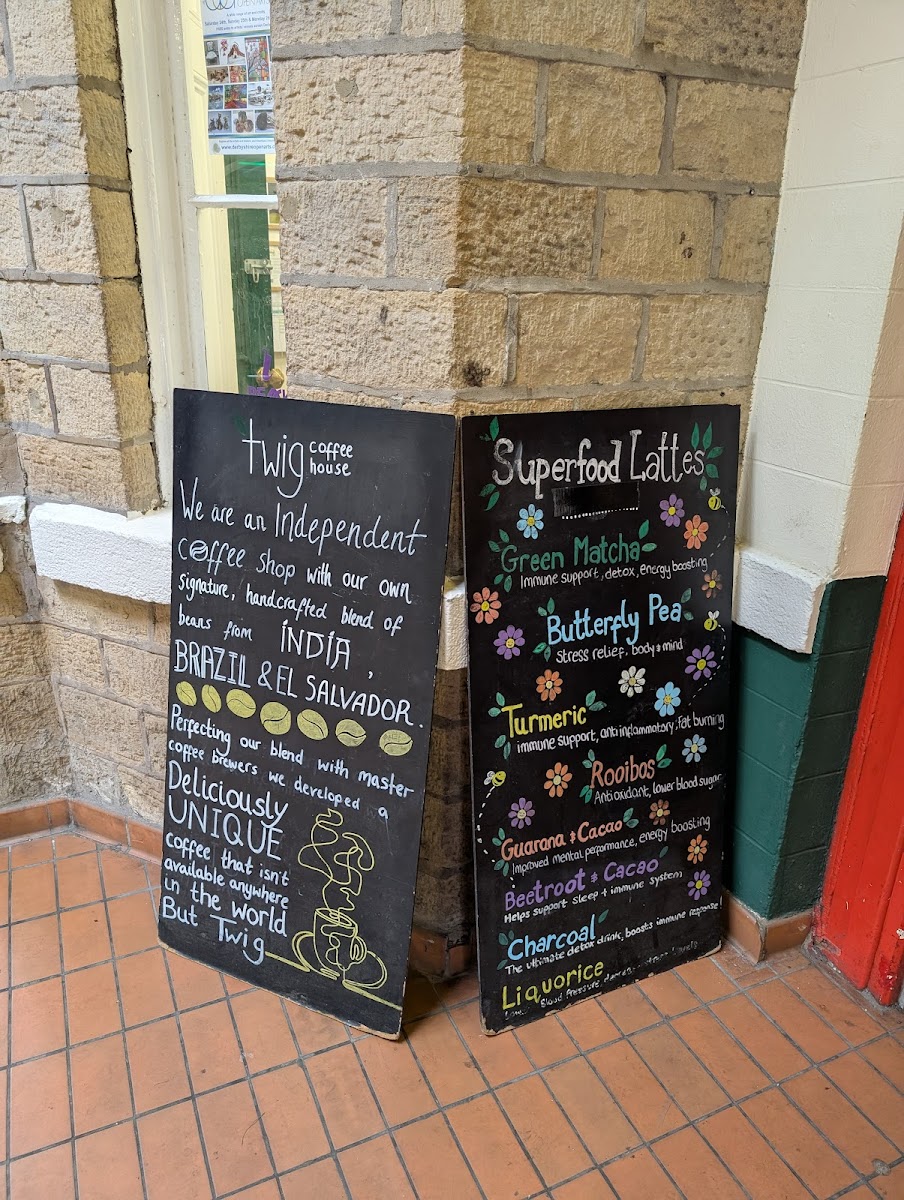 twig coffee
house
We are an Independent
coffee shop with our own
signature, handcrafted blend of
beans from INDIA,
BRAZIL & EL SALVADOR.
Perfecting our blend with master
coffee brewers we developed a
Deliciously
UNIQUE
coffee that isn't
available anywhere
in the world
But Twig
Superfood Lattes
Green Matcha
Immune support, detox, energy boosting
Butterfly Pea
Stress relief, body & mind
Turmeric
immune support, anti inflammatory, fat burning
Rooibos
Antioxidant, lower blood sugar
Guarana & Cacao
Improved mental performance, energy boosting
Beetroot & Cacao
Helps support sleep + immune system
Charcoal
The ultimate detox drink, boosts immune response!
Liquorice
Blood Pressure,